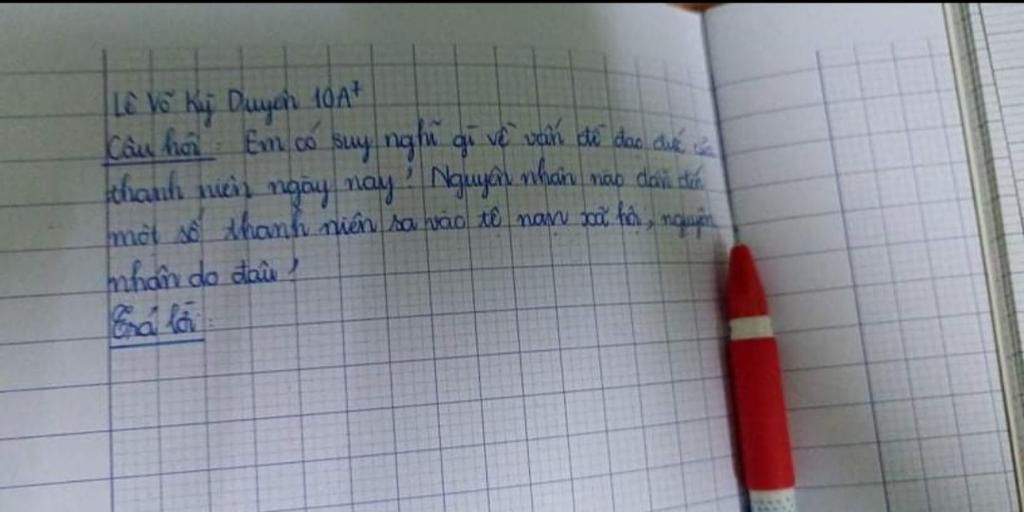 Lê Võ Kỳ Duyên 10A+
Câu hỏi: Em có suy nghĩ gì về vấn đề đạo đức của
thanh niên ngày nay? Nguyên nhân nào dẫn đến
một số thanh niên sa vào tệ nạn xã hội, nguyên
nhân do đâu?
Trả lời: